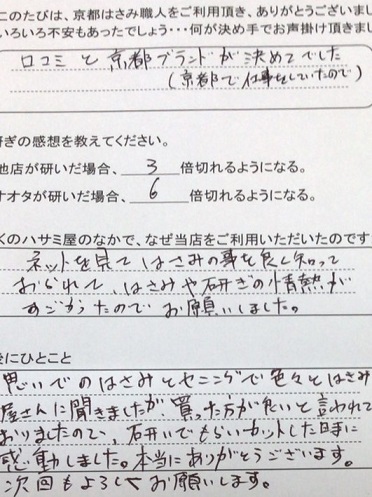 このたびは、京都はさみ職人をご利用頂き、ありがとうございまし
いろいろ不安もあったでしょう・・・何が決め手でお声掛け頂きまし
口コミと京都ブランドが決めてでした
(京都で仕事をしていたので)
研ぎの感想を教えてください。
他店が研いだ場合、3倍切れるようになる。
ナオタが研いだ場合、6倍切れるようになる。
くのハサミ屋のなかで、なぜ当店をご利用いただいたのです
ネットを見てはさみの事を良く知って
おられて、はさみや研ぎの情熱が
すごかったのでお願いしました。
にひとこと
思いでのはさみとセニングで色々とはさみ
屋さんに聞きましたが、買った方が良いと言われて
おりましたので、研いでもらいカットした時に
感動しました。本当にありがとうございます。
次回もよろしくお願いします。